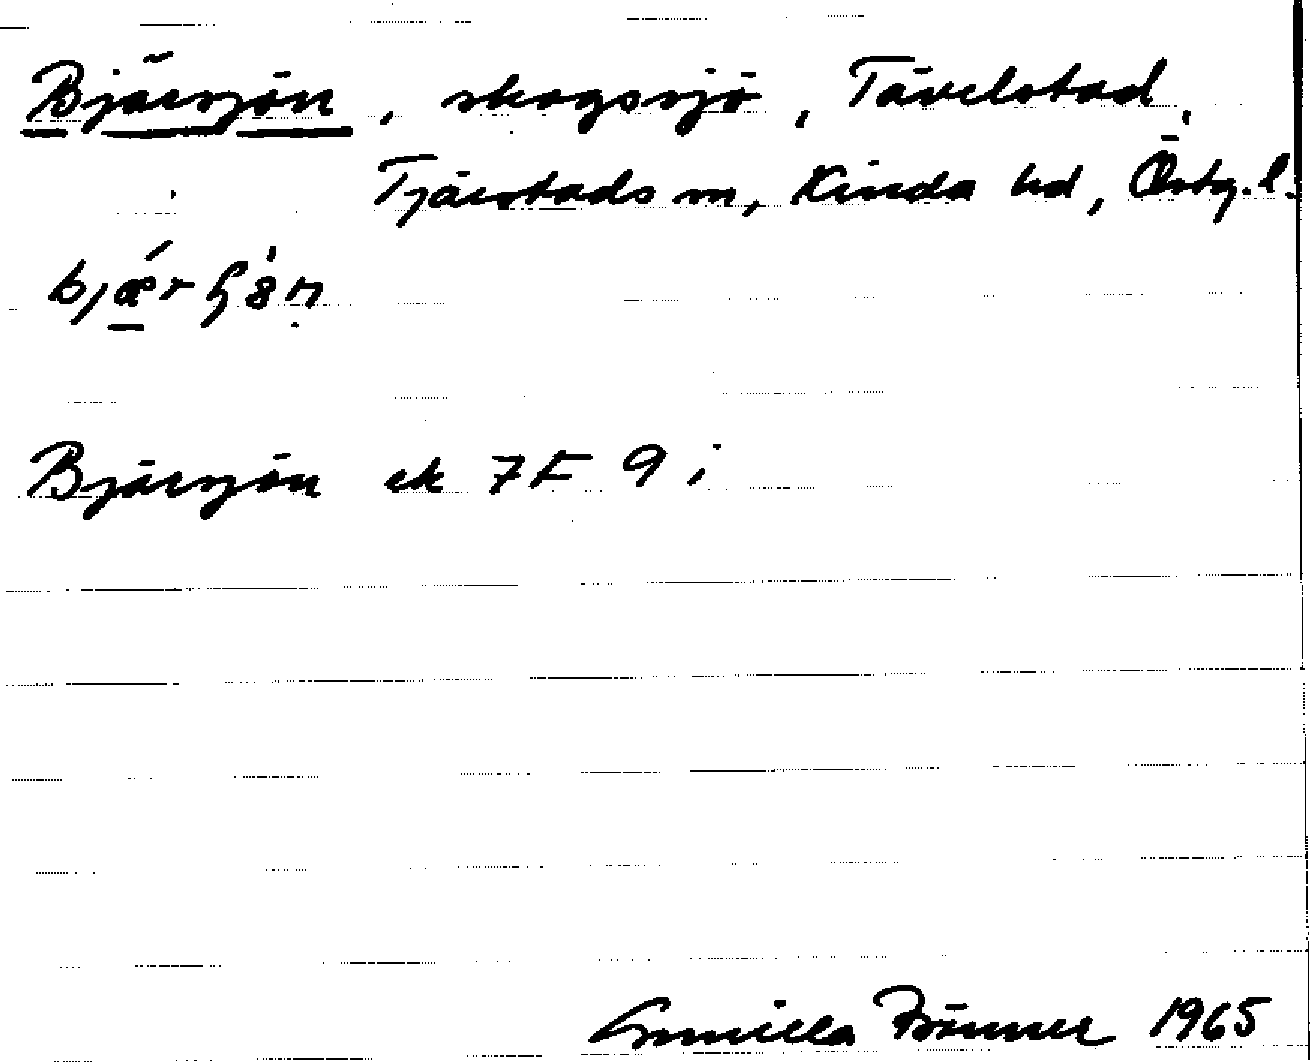 Bjärsjön, skogssjö, Tävelstad,
Tjärstads sn, Kinda hd, Östg. l.
Bjärsjön ek 7F 9 i
Gunilla 1965